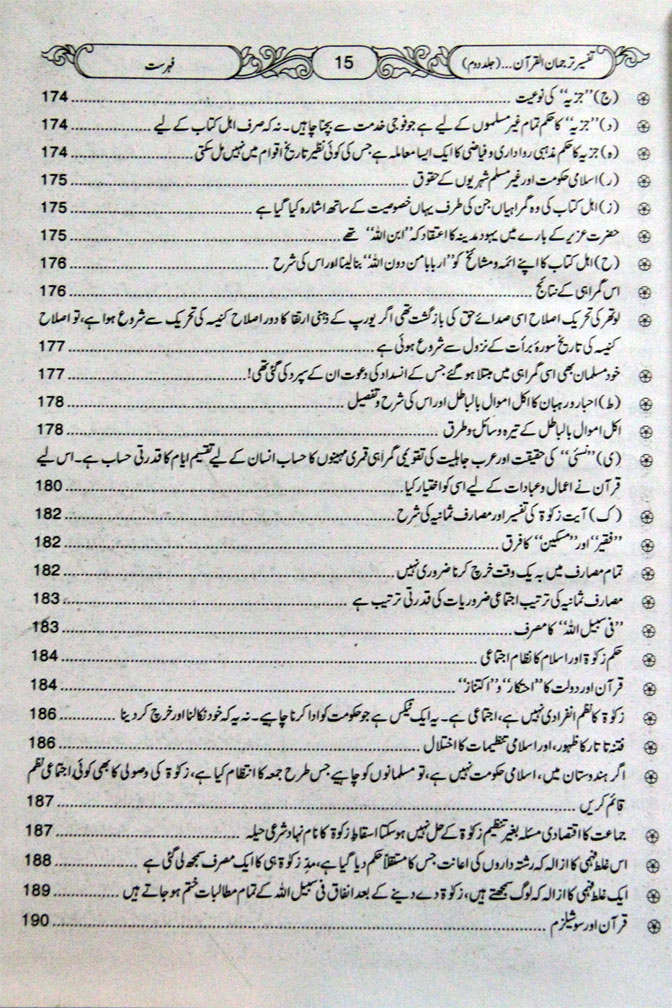 تفسیر ترجمان القرآن... (جلد دوم) 15 فہرست
(ج) ”جزیہ“ کی نوعیت 174
(د) ”جزیہ“ کا حکم تمام غیر مسلموں کے لیے ہے جو فوجی خدمت سے بچنا چاہیں۔ نہ کہ صرف اہل کتاب کے لیے 174
(ہ) جزیہ کا حکم مذہبی رواداری و فیاضی کا ایک ایسا معاملہ ہے جس کی کوئی نظیر تاریخ اقوام میں نہیں مل سکتی 174
(ر) اسلامی حکومت اور غیر مسلم شہریوں کے حقوق 175
(ز) اہل کتاب کی وہ گمراہیاں جن کی طرف یہاں خصوصیت کے ساتھ اشارہ کیا گیا ہے 175
حضرت عزیر کے بارے میں یہود مدینہ کا اعتقاد کہ ”ابن اللہ“ تھے 175
(ح) اہل کتاب کا اپنے ائمہ و مشائخ کو ”اربابا من دون اللہ“ بنا لینا اور اس کی شرح 176
اس گمراہی کے نتائج 176
لوتھر کی تحریک اصلاح اسی صدائے حق کی بازگشت تھی اگر یورپ کے ذہنی ارتقا کا دور اصلاح کنیسہ کی تحریک سے شروع ہوا ہے، تو اصلاح
کنیسہ کی تاریخ سورۂ برأت کے نزول سے شروع ہوئی ہے 177
خود مسلمان بھی اسی گمراہی میں مبتلا ہو گئے جس کے انسداد کی دعوت ان کے سپرد کی گئی تھی! 177
(ط) احبار و رہبان کا اکل اموال بالباطل اور اس کی شرح و تفصیل 178
اکل اموال بالباطل کے تیرہ وسائل و طرق 178
(ی) ”نسئی“ کی حقیقت اور عرب جاہلیت کی تقویمی گمراہی قمری مہینوں کا حساب انسان کے لیے تقسیم ایام کا قدرتی حساب ہے۔ اس لیے
قرآن نے اعمال و عبادات کے لیے اسی کو اختیار کیا 180
(ک) آیت زکوٰۃ کی تفسیر اور مصارف ثمانیہ کی شرح 182
”فقیر“ اور ”مسکین“ کا فرق 182
تمام مصارف میں بہ یک وقت خرچ کرنا ضروری نہیں 182
مصارف ثمانیہ کی ترتیب اجتماعی ضروریات کی قدرتی ترتیب ہے 183
”فی سبیل اللہ“ کا مصرف 183
حکم زکوٰۃ اور اسلام کا نظام اجتماعی 184
قرآن اور دولت کا ”احتکار“ و ”اکتناز“ 184
زکوٰۃ کا نظم انفرادی نہیں ہے، اجتماعی ہے۔ یہ ایک ٹیکس ہے جو حکومت کو ادا کرنا چاہیے۔ نہ یہ کہ خود نکالنا اور خرچ کر دینا 186
فتنہ تاتار کا ظہور، اور اسلامی تنظیمات کا اختلال 186
اگر ہندوستان میں، اسلامی حکومت نہیں ہے، تو مسلمانوں کو چاہیے جس طرح جمعہ کا انتظام کیا ہے، زکوٰۃ کی وصولی کا بھی کوئی اجتماعی نظم
قائم کریں 187
جماعت کا اقتصادی مسئلہ بغیر تنظیم زکوٰۃ کے حل نہیں ہو سکتا اسقاطِ زکوٰۃ کا نام نہاد شرعی حیلہ 187
اس غلط فہمی کا ازالہ کہ رشتہ داروں کی اعانت جس کا مستقلاً حکم دیا گیا ہے، مدِ زکوٰۃ ہی کا ایک مصرف سمجھ لی گئی ہے 188
ایک غلط فہمی کا ازالہ کہ لوگ سمجھتے ہیں، زکوٰۃ دے دینے کے بعد انفاق فی سبیل اللہ کے تمام مطالبات ختم ہو جاتے ہیں 189
قرآن اور سوشیلزم 190